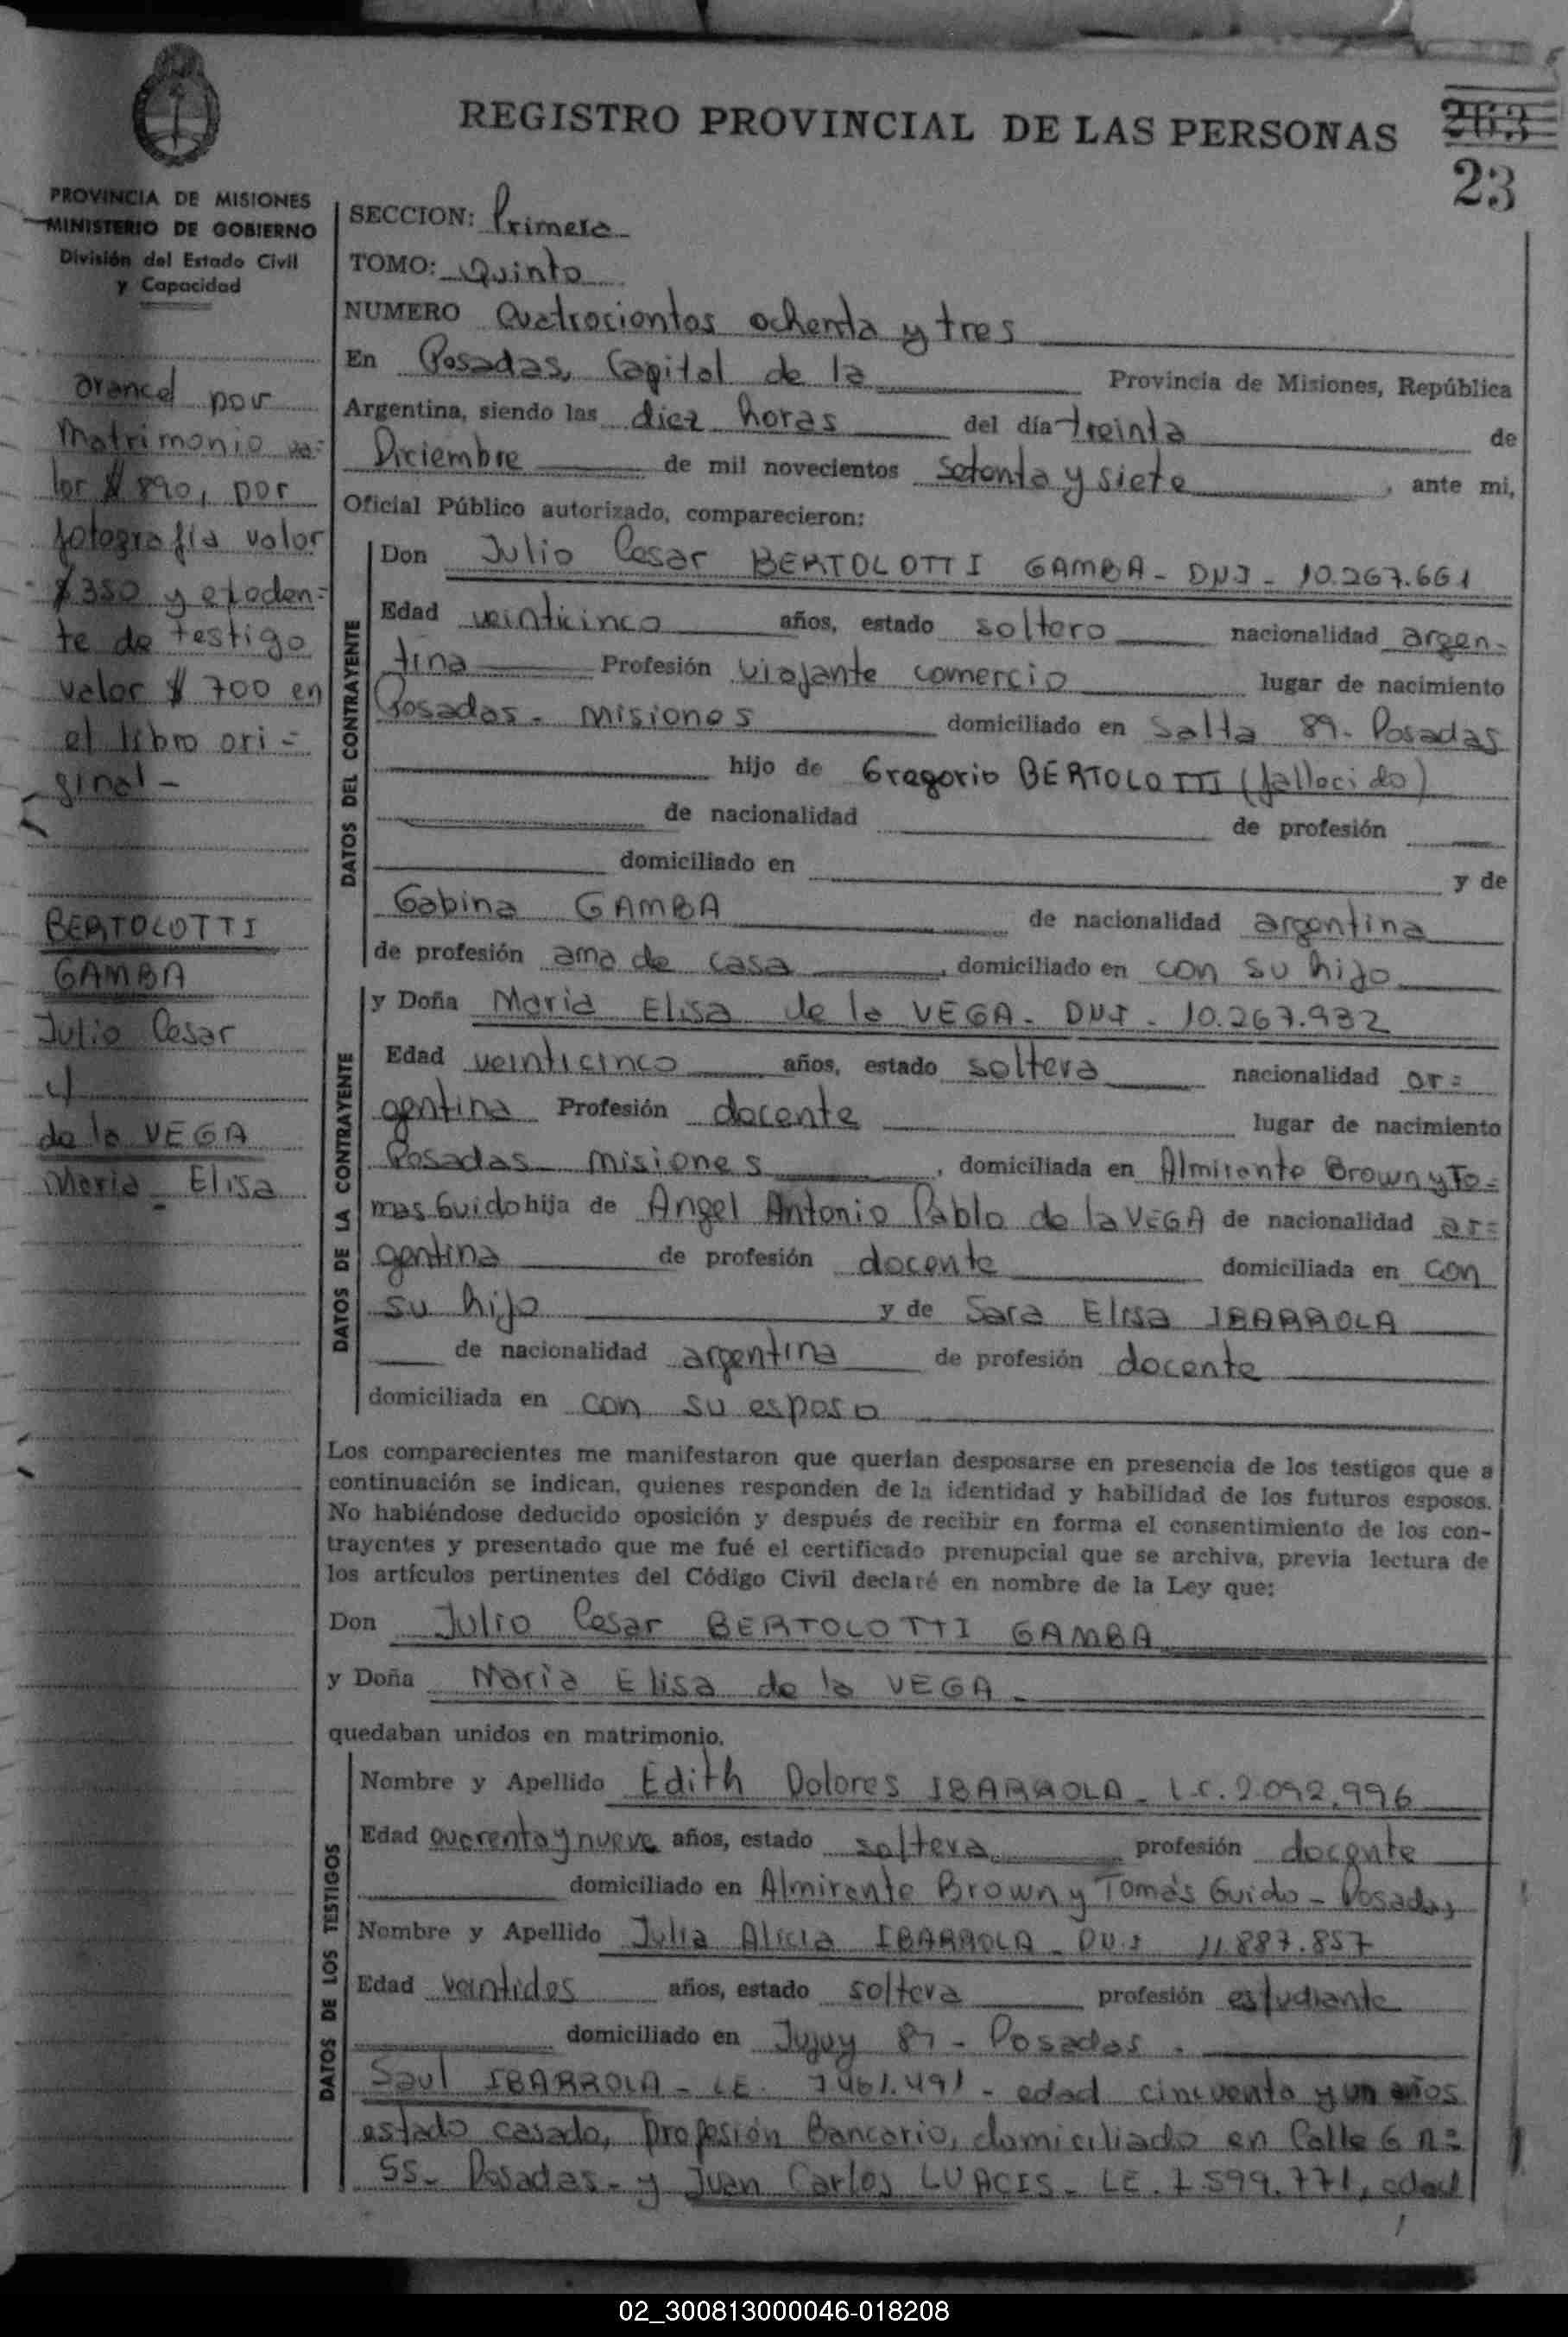 REGISTRO PROVINCIAL DE LAS PERSONAS
263
23
PROVINCIA DE MISIONES
MINISTERIO DE GOBIERNO
División del Estado Civil
y Capacidad
arancel por
Matrimonio va=
lor $ 890, por
fotografia valor
$ 350 y exceden=
te de testigo
valor $ 700 en
el libro ori=
ginal-
BERTOLOTTI
GAMBA
Julio Cesar
c/
de la VEGA
Maria Elisa
SECCION: Primera-
TOMO: Quinto
NUMERO Cuatrocientos ochenta y tres
En Posadas, Capital de la Provincia de Misiones, República
Argentina, siendo las diez horas del día treinta de
Diciembre de mil novecientos Setenta y siete, ante mi,
Oficial Público autorizado, comparecieron:
DATOS DEL CONTRAYENTE
Don Julio Cesar BERTOLOTTI GAMBA- DNI- 10.267.661
Edad veinticinco años, estado soltero nacionalidad argen-
tina Profesión viajante comercio lugar de nacimiento
Posadas- Misiones domiciliado en Salta 89- Posadas
hijo de Gregorio BERTOLOTTI (fallecido)
de nacionalidad de profesión
domiciliado en y de
Gabina GAMBA de nacionalidad argentina
de profesión ama de casa, domiciliado en con su hijo
DATOS DE LA CONTRAYENTE
y Doña Maria Elisa de la VEGA- DNI- 10.267.932
Edad veinticinco años, estado soltera nacionalidad ar=
gentina Profesión docente lugar de nacimiento
Posadas- Misiones, domiciliada en Almirante Brown y To=
mas Guido hija de Angel Antonio Pablo de la VEGA de nacionalidad ar=
gentina de profesión docente domiciliada en con
su hijo y de Sara Elisa IBARROLA
de nacionalidad argentina de profesión docente
domiciliada en con su esposo
Los comparecientes me manifestaron que querían desposarse en presencia de los testigos que a
continuación se indican, quienes responden de la identidad y habilidad de los futuros esposos.
No habiéndose deducido oposición y después de recibir en forma el consentimiento de los con-
trayentes y presentado que me fué el certificado prenupcial que se archiva, previa lectura de
los artículos pertinentes del Código Civil declaré en nombre de la Ley que:
Don Julio Cesar BERTOLOTTI GAMBA
y Doña Maria Elisa de la VEGA-
quedaban unidos en matrimonio.
DATOS DE LOS TESTIGOS
Nombre y Apellido Edith Dolores IBARROLA- L.C. 2.092.996
Edad cuarenta y nueve años, estado soltera profesión docente
domiciliado en Almirante Brown y Tomás Guido- Posadas
Nombre y Apellido Julia Alicia IBARROLA- DNI 11.887.857
Edad veintidos años, estado soltera profesión estudiante
domiciliado en Jujuy 87- Posadas.
Saul IBARROLA- LE. 7461.491- edad cincuenta y un años
estado casado, profesión Bancario, domiciliado en Calle 6 n=
55- Posadas- y Juan Carlos LUACES- LE. 7.599.771, edad
02_300813000046-018208